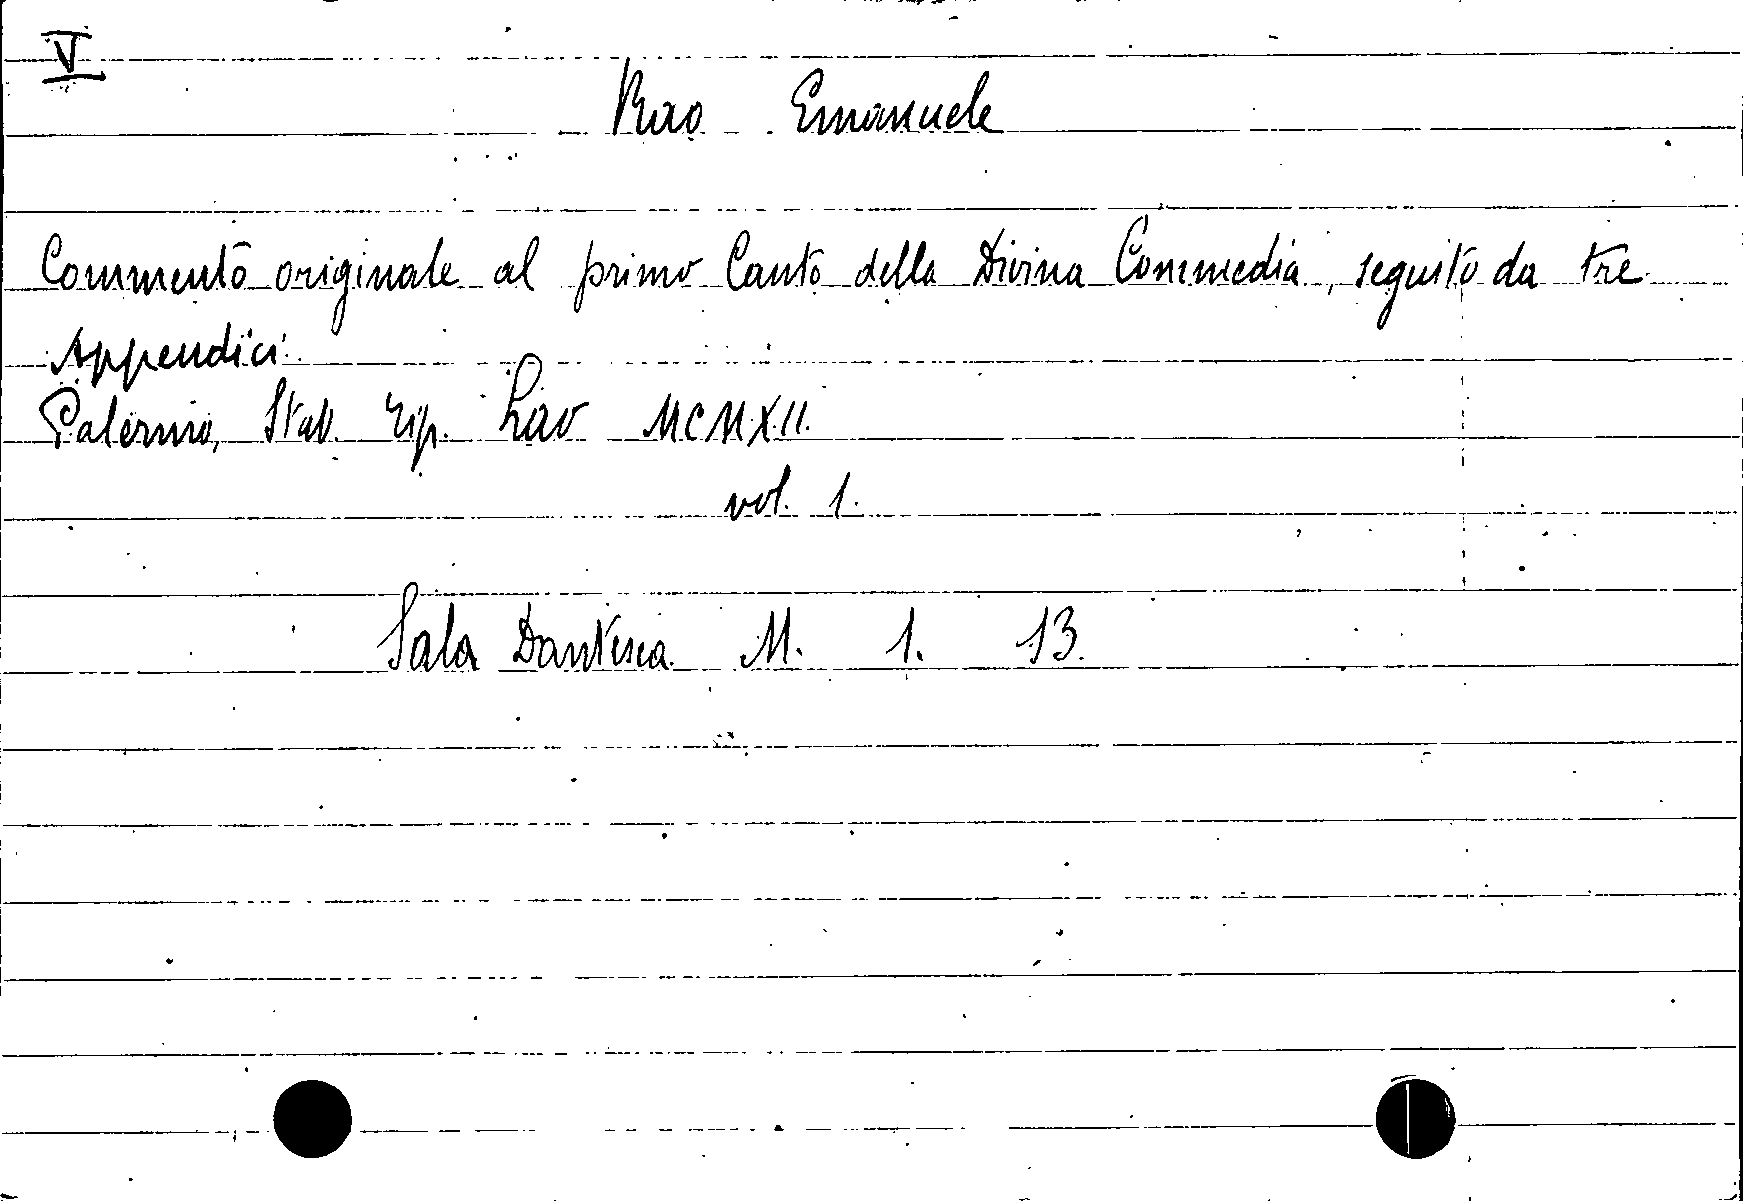 V
Rao Emanuele
Commento originale al primo Canto della Divina Commedia, seguito da tre
Appendici.
Palermo, Stab. Tip. Lao MCMXII.
vol. 1.
Sala Dantesca M. 1. 13.